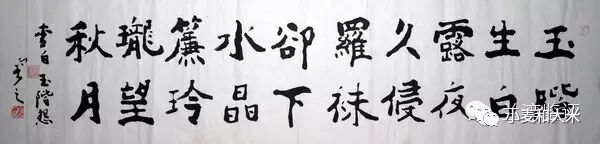 玉階
生白
露夜
久侵
羅袜
卻下
水晶
簾玲
瓏望
秋月
李白玉階怨